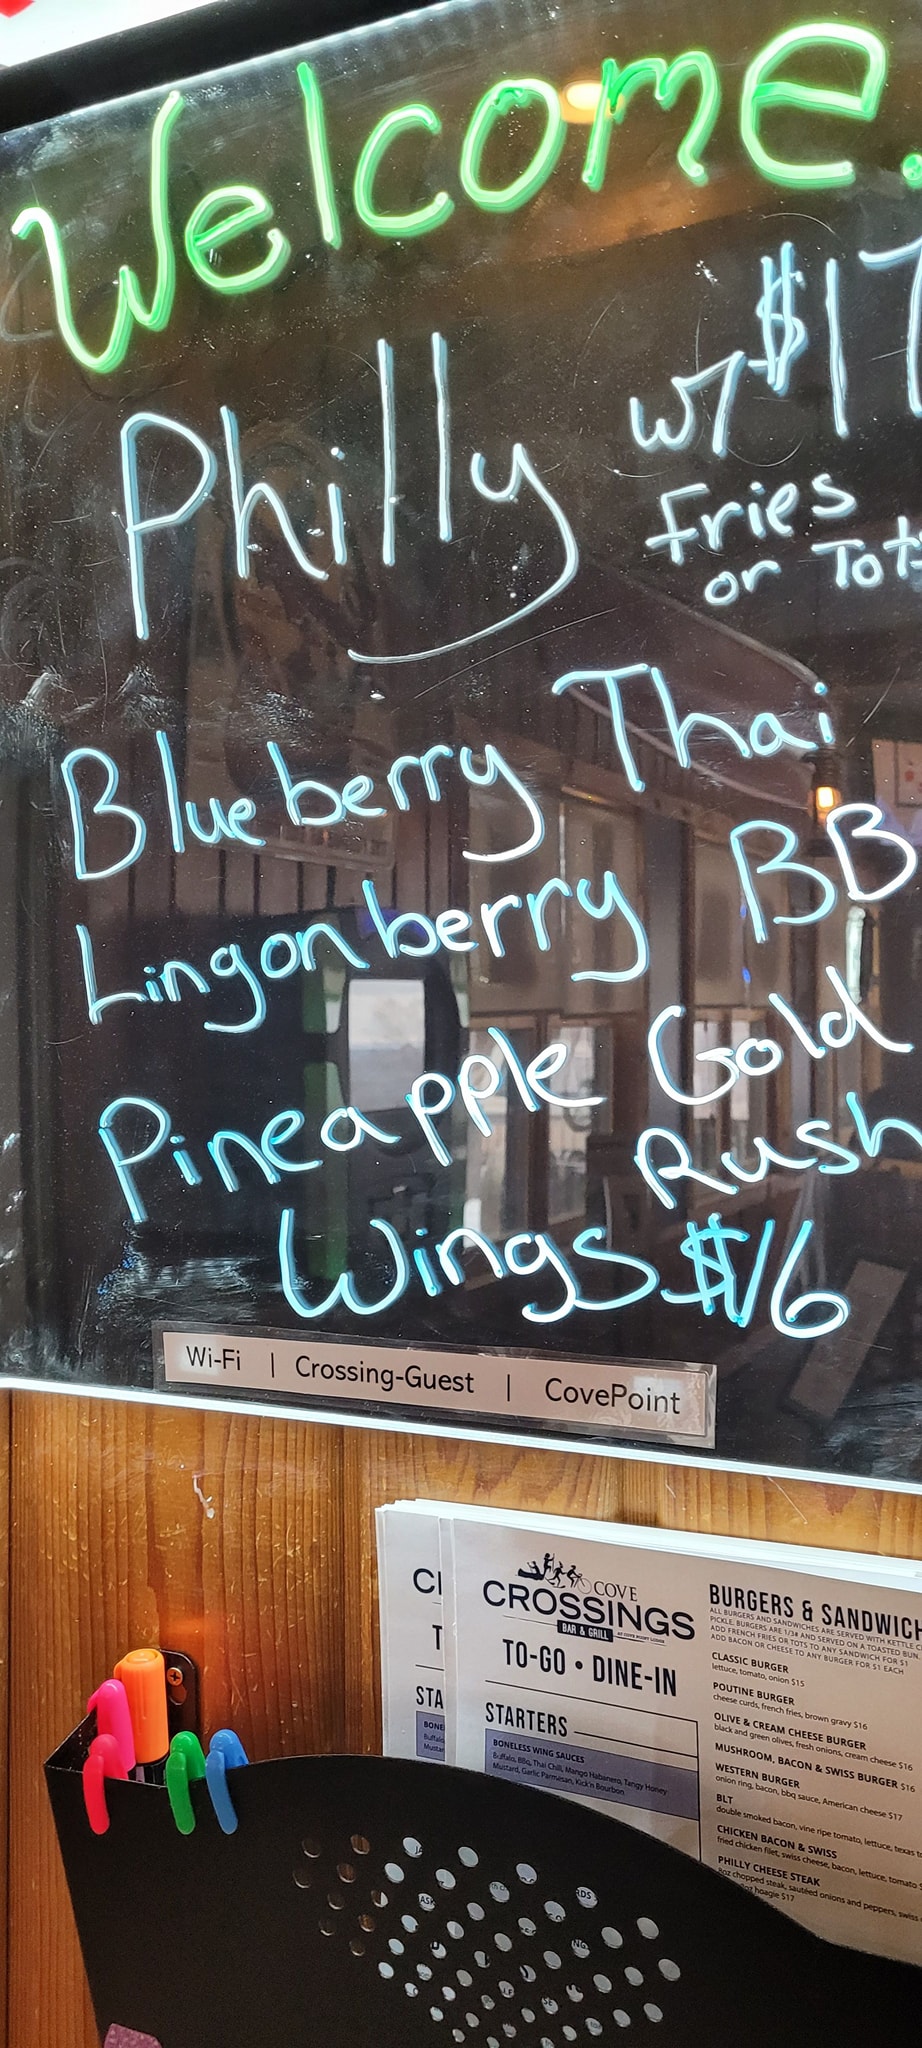 Welcome.
Philly w/ $17
Fries
or Tots
Blueberry Thai
Lingonberry BB
Pineapple Gold
Rush
Wings $16
Wi-Fi | Crossing-Guest | CovePoint
COVE
CROSSINGS
BAR & GRILL AT COVE POINT LODGE
TO-GO • DINE-IN
STARTERS
BONELESS WING SAUCES
Buffalo, BBQ, Thai Chili, Mango Habanero, Tangy Honey
Mustard, Garlic Parmesan, Kick'n Bourbon
BURGERS & SANDWICH
ALL BURGERS AND SANDWICHES ARE SERVED WITH KETTLE C
PICKLE. BURGERS ARE 1/3# AND SERVED ON A TOASTED BUN.
ADD FRENCH FRIES OR TOTS TO ANY SANDWICH FOR $1
ADD BACON OR CHEESE TO ANY BURGER FOR $1 EACH
CLASSIC BURGER
lettuce, tomato, onion $15
POUTINE BURGER
cheese curds, french fries, brown gravy $16
OLIVE & CREAM CHEESE BURGER
black and green olives, fresh onions, cream cheese $16
MUSHROOM, BACON & SWISS BURGER $16
WESTERN BURGER
onion ring, bacon, bbq sauce, American cheese $17
BLT
double smoked bacon, vine ripe tomato, lettuce, texas to
CHICKEN BACON & SWISS
fried chicken filet, swiss cheese, bacon, lettuce, tomato $
PHILLY CHEESE STEAK
8oz chopped steak, sautéed onions and peppers, swiss
hoagie $17
CI
T
STA
BONE
Buffalo
Mustar